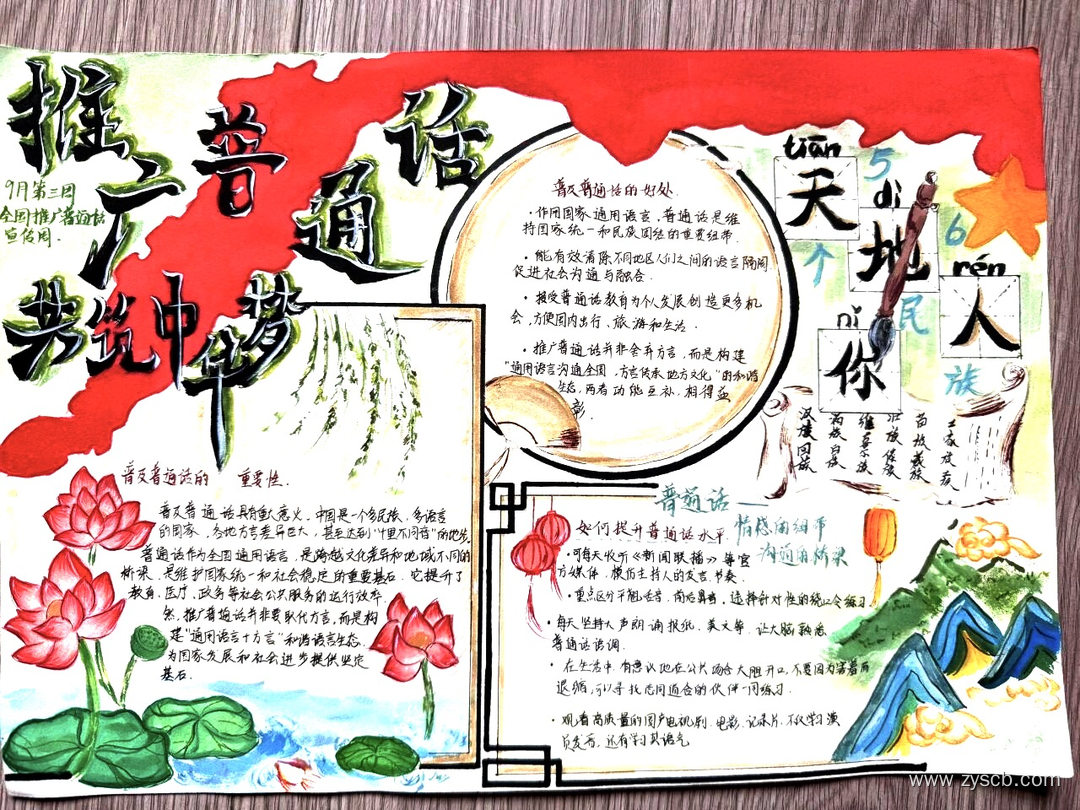 推广普通话
9月第三周
全国推广普通话
宣传周.
共筑中华梦
普及普通话的好处.
·作用国家通用语言,普通话是维
持国家统一和民族团结的重要纽带.
·能有效消除不同地区人们之间的语言隔阂
促进社会沟通与融合.
·接受普通话教育为个人发展创造更多机
会,方便国内出行、旅游和生活.
·推广普通话并非舍弃方言,而是构建
"通用语言沟通全国,方言传承地方文化"的和谐
生态,两者功能互补,相得益
彰.
tiān
天
5
dì
地
6
rén
人
nǐ
你
民
族
汉族回族
满族白族
维吾尔族
苗族藏族
普及普通话的 重要性.
普及普通话具有重大意义.中国是一个多民族、多语言
的国家,各地方言差异巨大,甚至达到"十里不同音"的地步.
普通话作为全国通用语言,是跨越文化差异和地域不同的
桥梁,是维护国家统一和社会稳定的重要基石.它提升了
教育、医疗、政务等社会公共服务的运行效率.
然,推广普通话并非要取代方言,而是构
建"通用语言+方言"和谐语言生态,
为国家发展和社会进步提供坚定
基石.
普通话——
情感的纽带
沟通的桥梁
如何提升普通话水平
·可每天收听《新闻联播》等官
方媒体,模仿主持人的发言、节奏.
·重点区分平翘舌音,前后鼻音,选择针对性的绕口令练习
·每天坚持大声朗诵报纸、美文等,让大脑熟悉
普通话语调.
·在生活中,有意识地在公共场合大胆开口,不要因为害羞而
退缩,可以寻找志同道合的伙伴一同练习.
·观看高质量的国产电视剧、电影、记录片,不仅学习演
员发音,还有学习其语气
www.zyscb.com